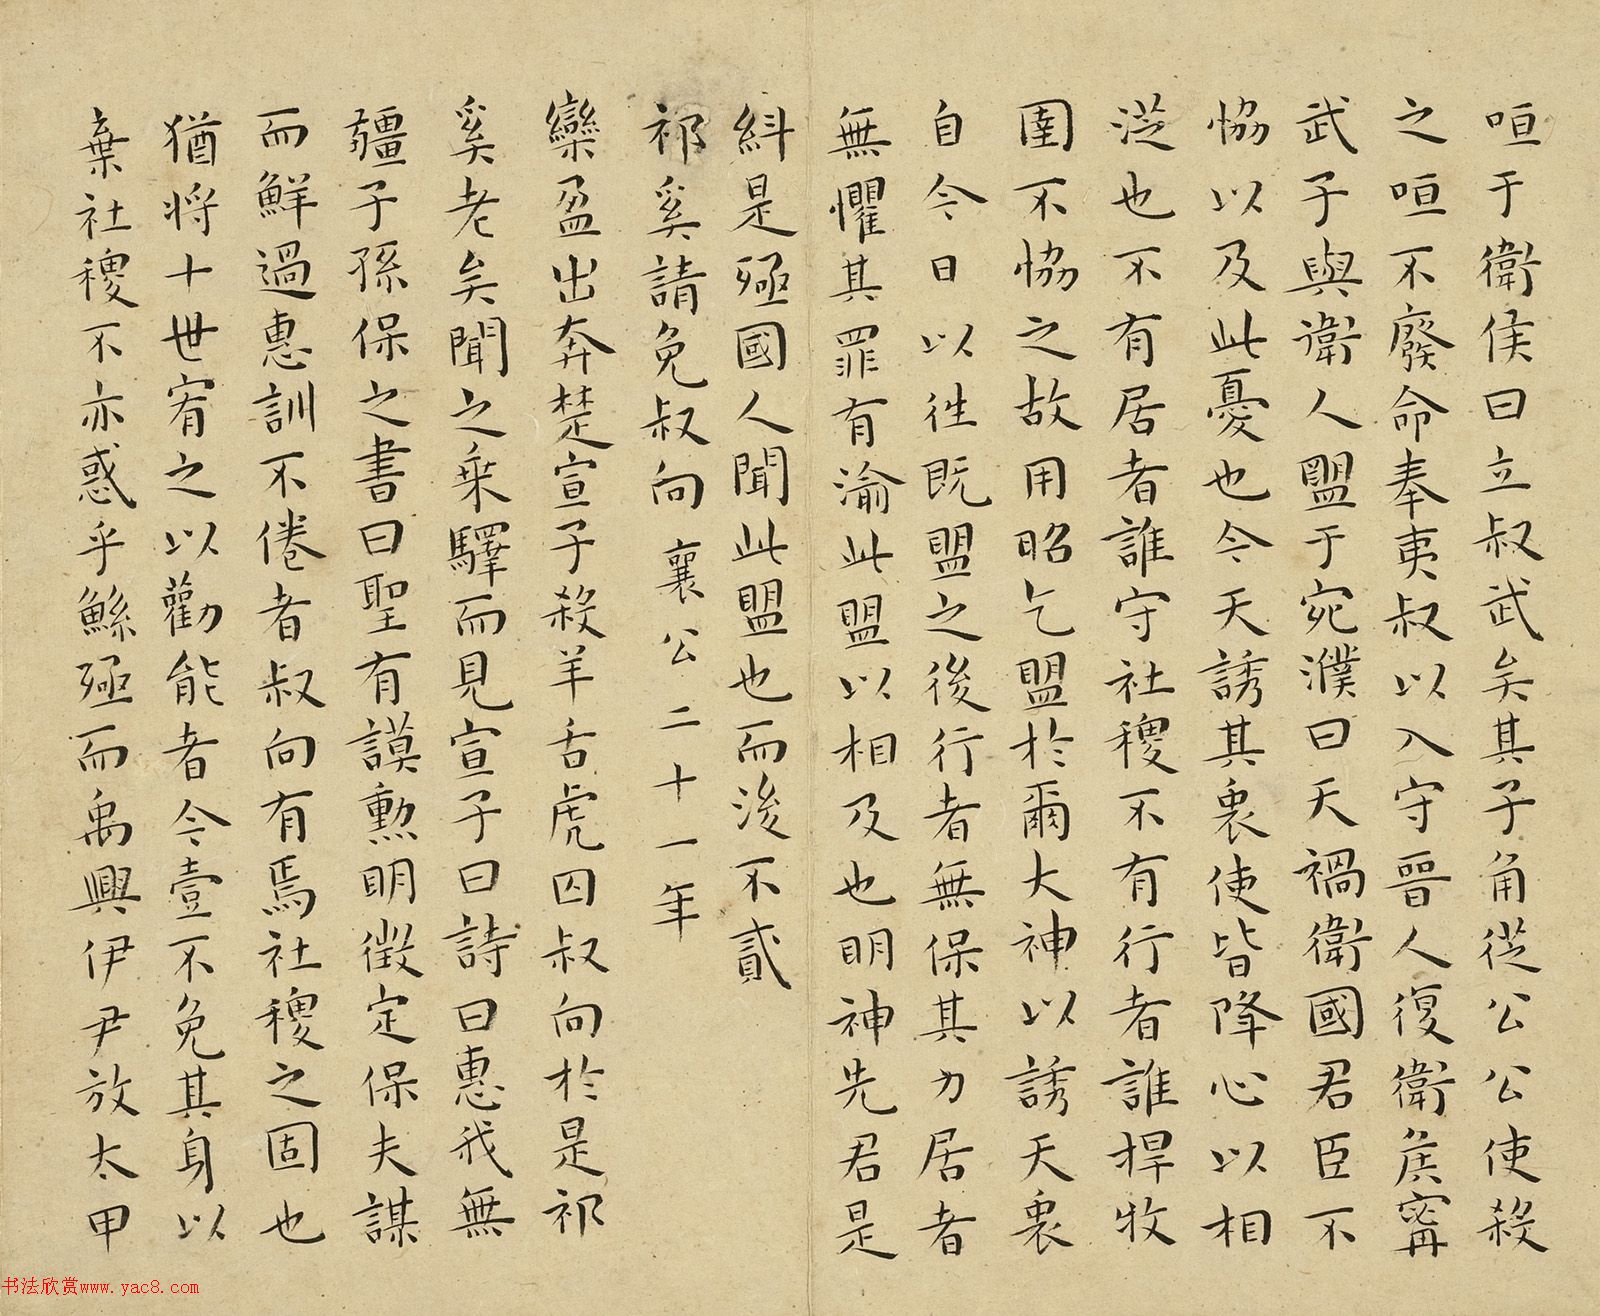 咺于衛侯曰立叔武矣其子角從公公使殺
之咺不廢命奉夷叔以入守晉人復衛侯甯
武子與衛人盟于宛濮曰天禍衛國君臣不
協以及此憂也今天誘其衷使皆降心以相
從也不有居者誰守社稷不有行者誰捍牧
圉不協之故用昭乞盟於爾大神以誘天衷
自今日以往既盟之後行者無保其力居者
無懼其罪有渝此盟以相及也明神先君是
糾是殛國人聞此盟也而後不貳
祁奚請免叔向 襄公二十一年
欒盈出奔楚宣子殺羊舌虎囚叔向於是祁
奚老矣聞之乘驛而見宣子曰詩曰惠我無
疆子孫保之書曰聖有謨勲明徴定保夫謀
而鮮過惠訓不倦者叔向有焉社稷之固也
猶將十世宥之以勸能者今壹不免其身以
棄社稷不亦惑乎鯀殛而禹興伊尹放太甲
书法欣赏www.yac8.com